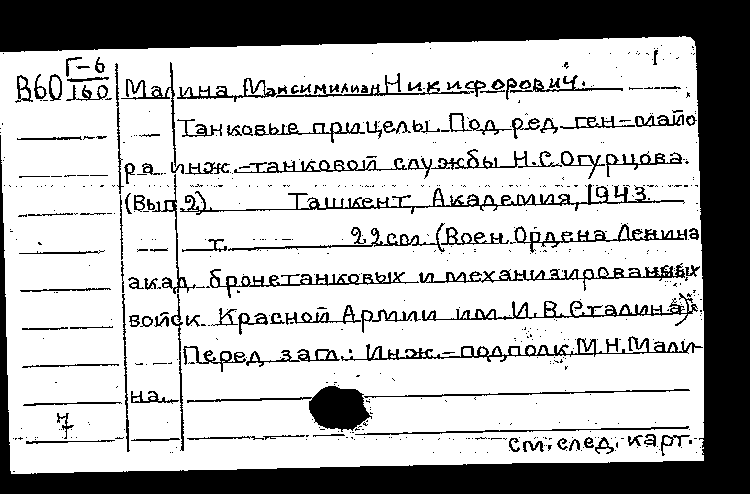 1
В60 Г-6/160 Малина, Максимилиан Никифорович.
— Танковые прицелы. Под ред. ген-майо
ра инж.-танковой службы Н.С.Огурцова.
(Вып.2). Ташкент, Академия, 1943.
— т. 22см. (Воен. Ордена Ленина
акад. бронетанковых и механизированных
войск Красной Армии им. И.В.Сталина).
Перед загл.: Инж.-подполк. М.Н.Мали-
на.
7
см. след. карт.